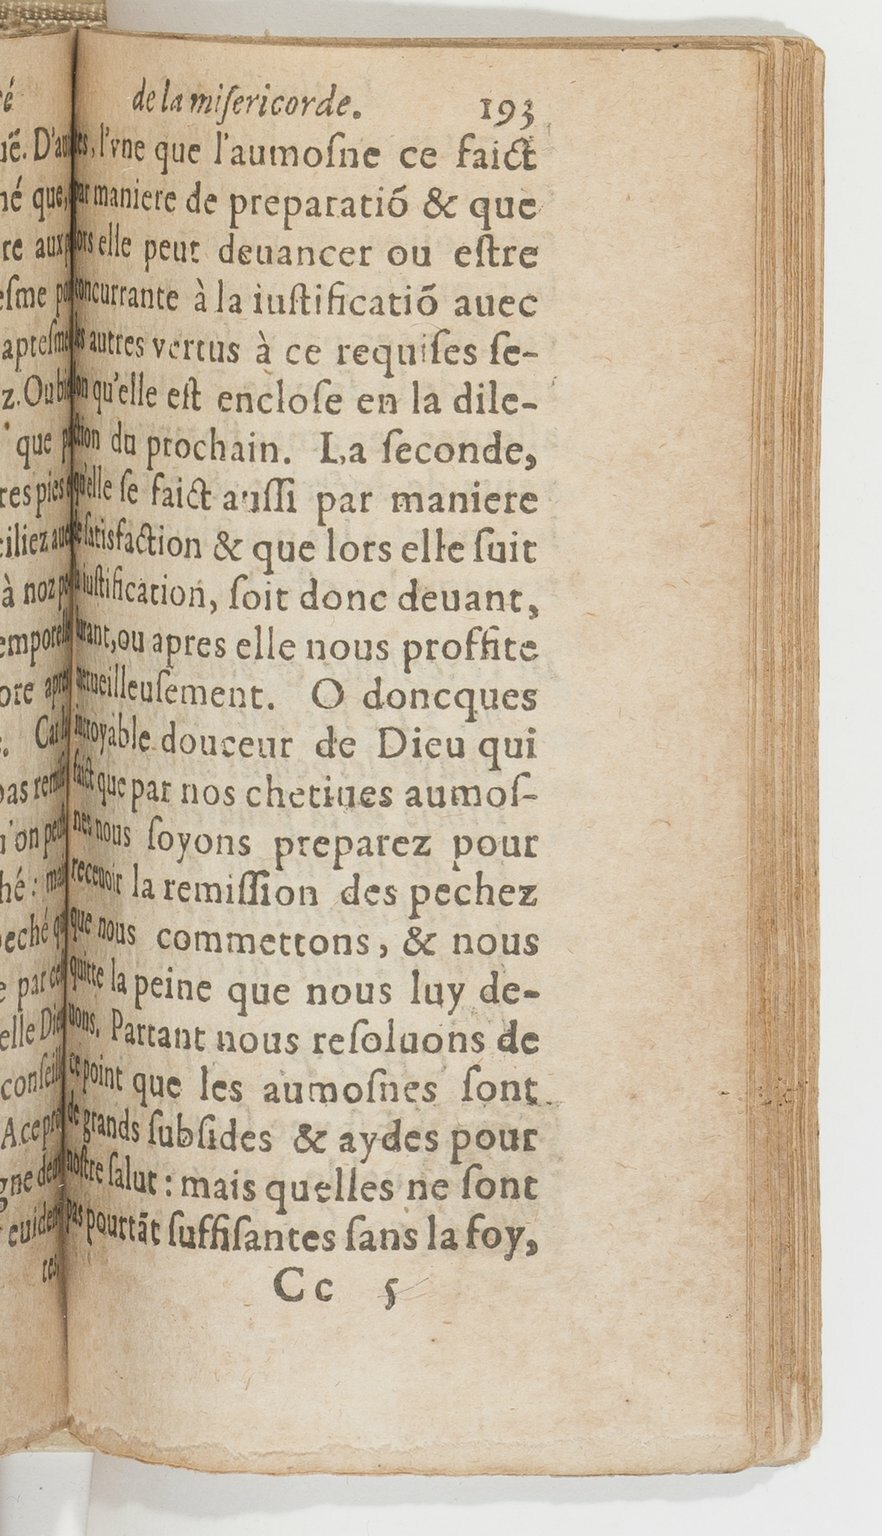 de la miſericorde. 193
l'vne que l'aumoſne ce faict
maniere de preparatiõ & que
lors elle peut deuancer ou eſtre
concurrante à la iuſtificatiõ auec
les autres vertus à ce requiſes ſe-
lon qu'elle eſt encloſe en la dile-
ction du prochain. La ſeconde,
qu'elle ſe faict auſſi par maniere
de ſatisfaction & que lors elle ſuit
la iuſtification, ſoit donc deuant,
durant, ou apres elle nous proffite
merueilleuſement. O doncques
incroyable douceur de Dieu qui
faict que par nos chetiues aumoſ-
nes nous ſoyons preparez pour
receuoir la remiſſion des pechez
que nous commettons, & nous
quitte la peine que nous luy de-
uons. Partant nous reſoluons de
ce point que les aumoſnes ſont
de grands ſubſides & aydes pour
noſtre ſalut : mais quelles ne ſont
pas pourtãt ſuffiſantes ſans la foy,
Cc 5